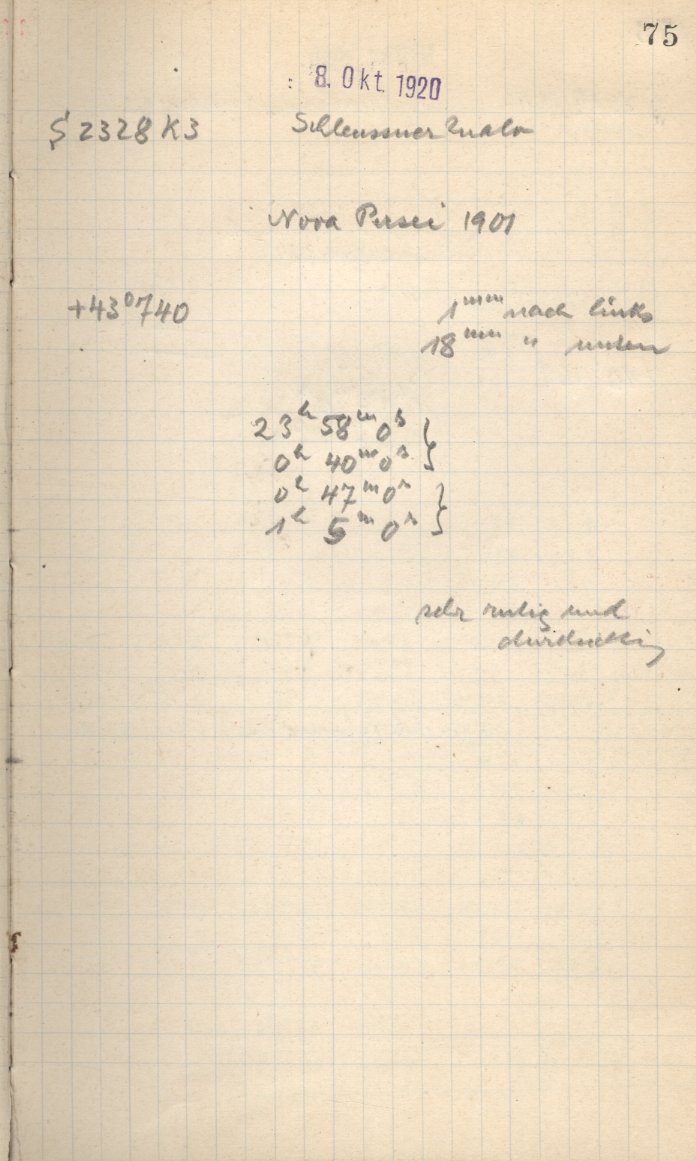 75
8. Okt. 1920
S 2328 K3 Schleussner Viola
Nova Persei 1901
+43°740 1mm nach links
18mm " unten
23h 58m 0s }
0h 40m 0s
0h 47m 0s }
1h 5m 0s
sehr ruhig und
durchsichtig